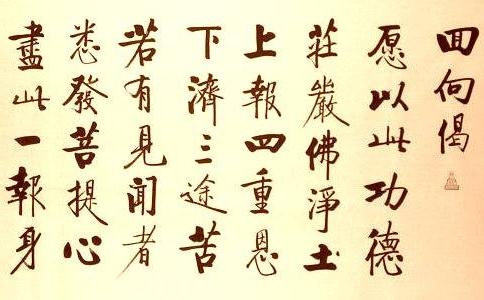 回向偈
愿以此功德
莊嚴佛淨土
上報四重恩
下濟三途苦
若有見聞者
悉發菩提心
盡此一報身